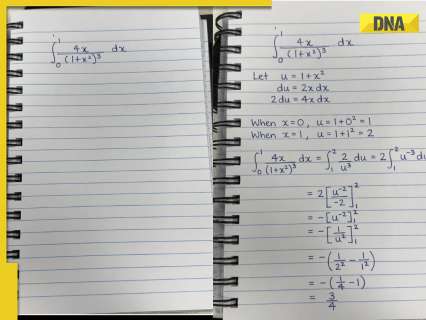 ∫₀¹ 4x/(1+x²)³ dx
DNA
∫₀¹ 4x/(1+x²)³ dx
Let u = 1+x²
du = 2x dx
2du = 4x dx
When x=0, u = 1+0² = 1
When x=1, u = 1+1² = 2
∫₀¹ 4x/(1+x²)³ dx = ∫₁² 2/u³ du = 2∫₁² u⁻³ du
= 2[u⁻²/-2]₁²
= -[u⁻²]₁²
= -[1/u²]₁²
= -(1/2² - 1/1²)
= -(1/4 - 1)
= 3/4